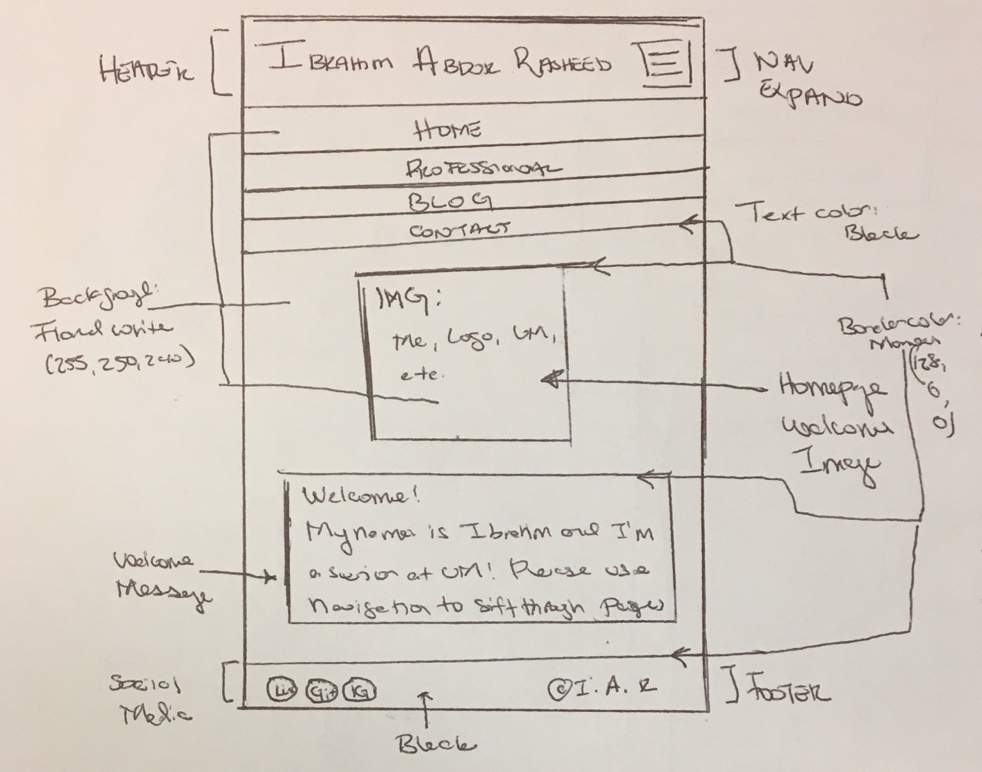 HEADER
IBRAHIM ABDUR RASHEED
NAV
EXPAND
HOME
PROFESSIONAL
BLOG
CONTACT
Text color:
Black
Background:
Floral white
(255, 250, 240)
IMG:
Me, Logo, UM,
etc.
Border color:
(128,
0,
0)
Homepage
Welcome
Image
Welcome!
My name is Ibrahim and I'm
a senior at UM! Please use
Navigation to sift through pages
Welcome
Message
Social
Media
Git
IG
© I. A. R
FOOTER
Black